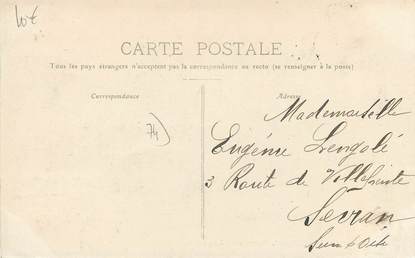 10€
CARTE POSTALE
Tous les pays étrangers n'acceptent pas la correspondance au recto (se renseigner à la poste)
Correspondance
Adresse
74)
Mademoiselle
Eugénie
3 Route de Villepinte
Sevran
Seine & Oise